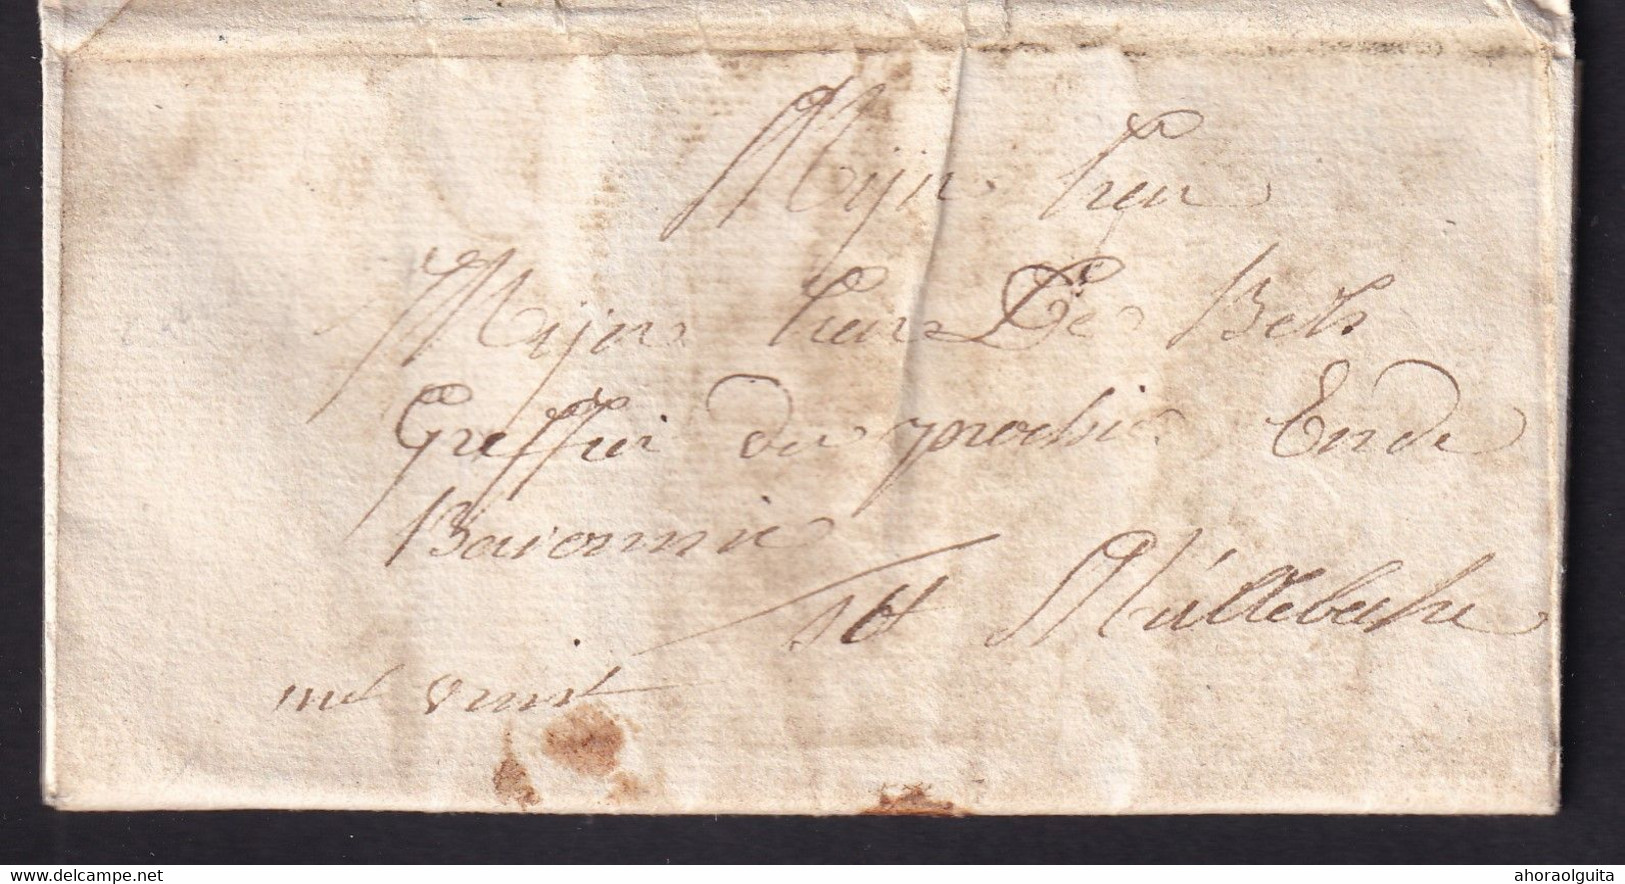 Mijn heer
Mijn heer De Bels
Greffier der prochie Ende
Baronnie
tot Meulebeke
met vrint
delcampe.net
ahoraolguita